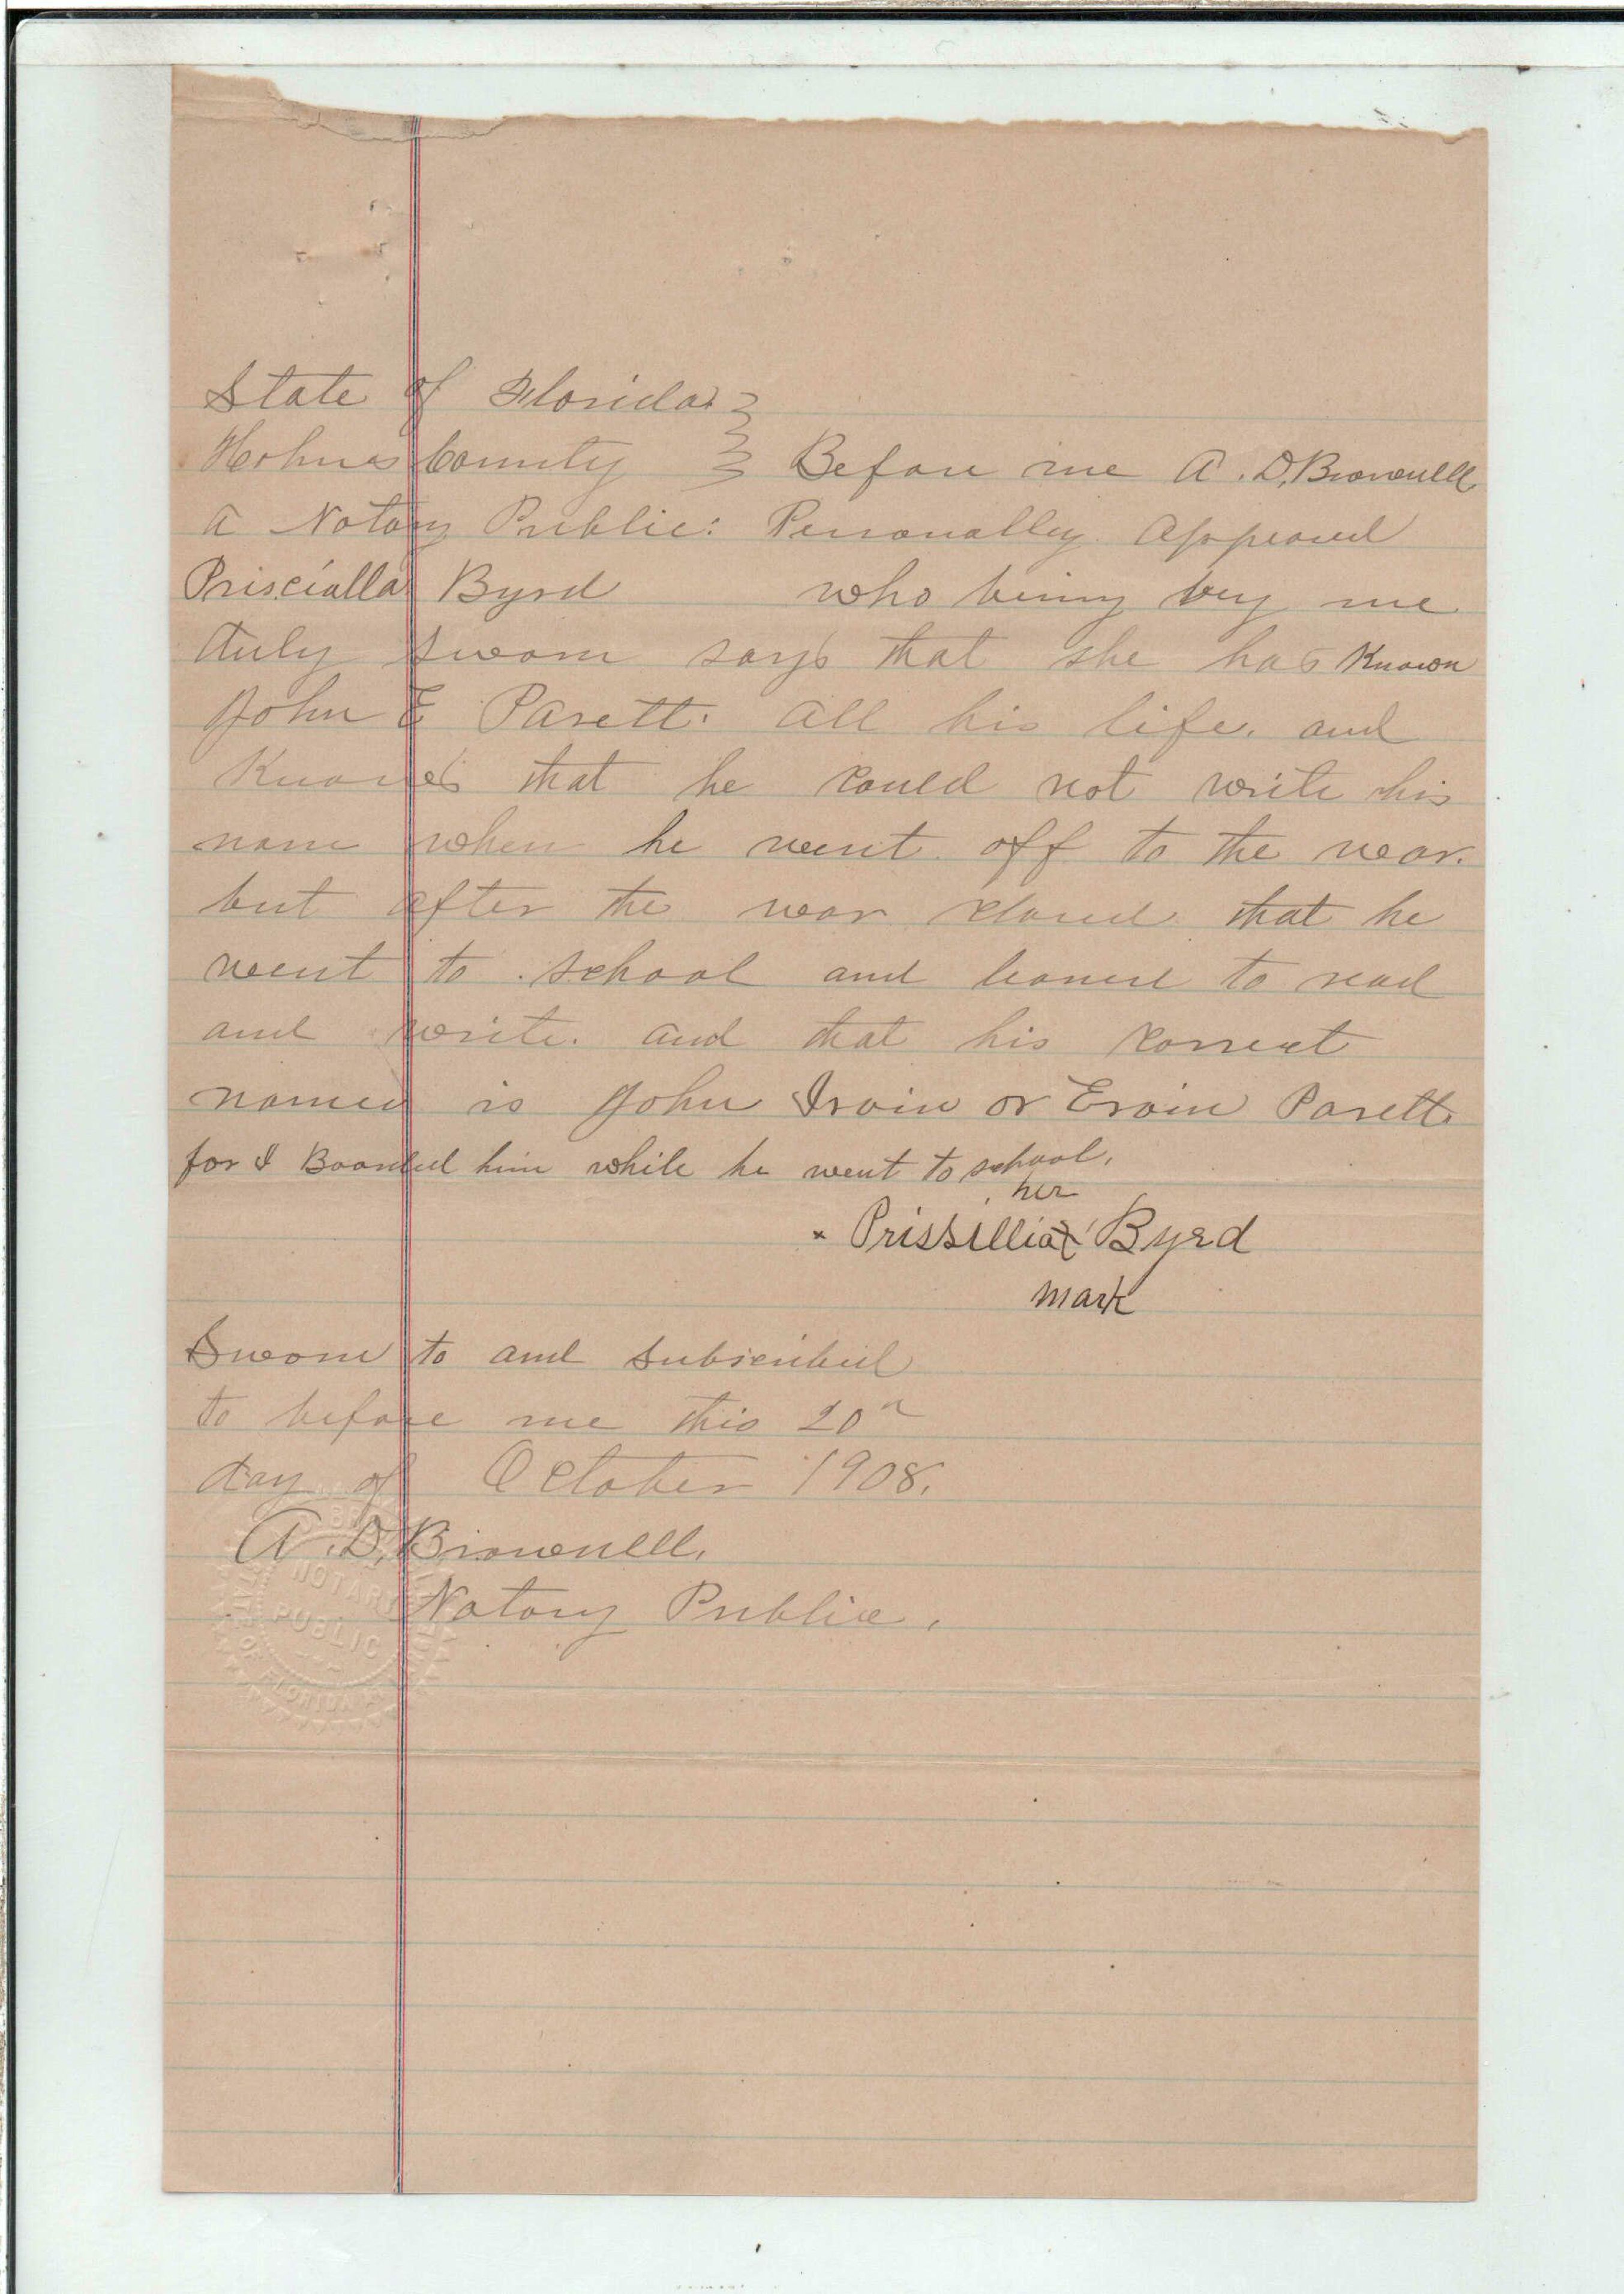 State of Florida }
Holmes County } Before me A. D. Brownell
a Notary Public: Personally appeared
Priscialla Byrd who being by me
duly sworn says that she has Known
John E Parett. all his life. and
Knowes that he could not write his
name when he went off to the war.
but after the war closed that he
went to school and learned to read
and write. and that his correct
named is John Irvin or Ervin Parett.
for I Boarded him while he went to school.
her
x Prissillia X Byrd
mark
Sworn to and subscribed
to before me this 20th
day of October 1908.
A. D. Brownell.
Notary Public.
NOTARY
PUBLIC
OF FLORIDA